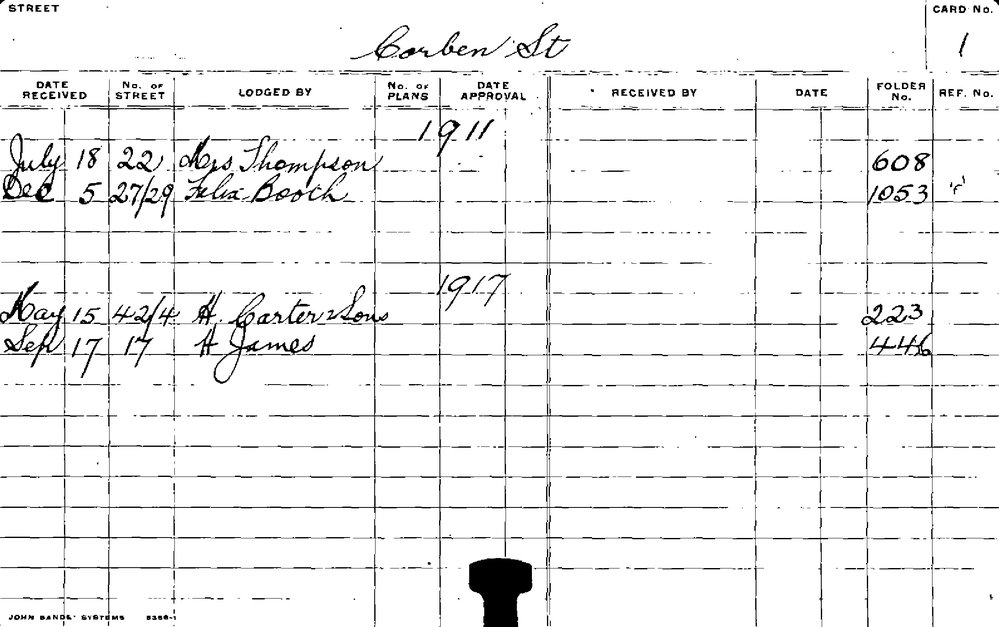 STREET CARD No.
Corben St 1
DATE RECEIVED No. OF STREET LODGED BY No. OF PLANS DATE APPROVAL RECEIVED BY DATE FOLDER No. REF. No.
1911
July 18 22 Mrs Thompson 608
Dec 5 27/29 Felix Booth 1053 'f'
1917
May 15 42/4 H. Carter & Sons 223
Sep 17 17 H James 446
JOHN SANDS' SYSTEMS